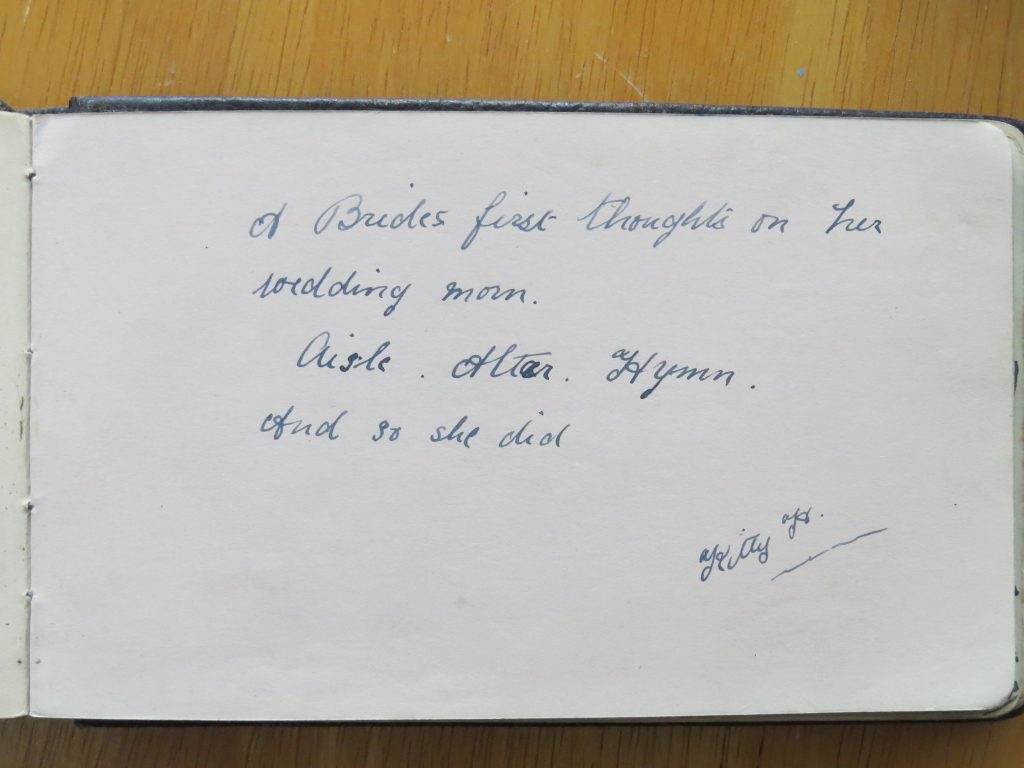 A Brides first thoughts on her
wedding morn.
Aisle. Alter. Hymn.
And so she did
Kitty H.